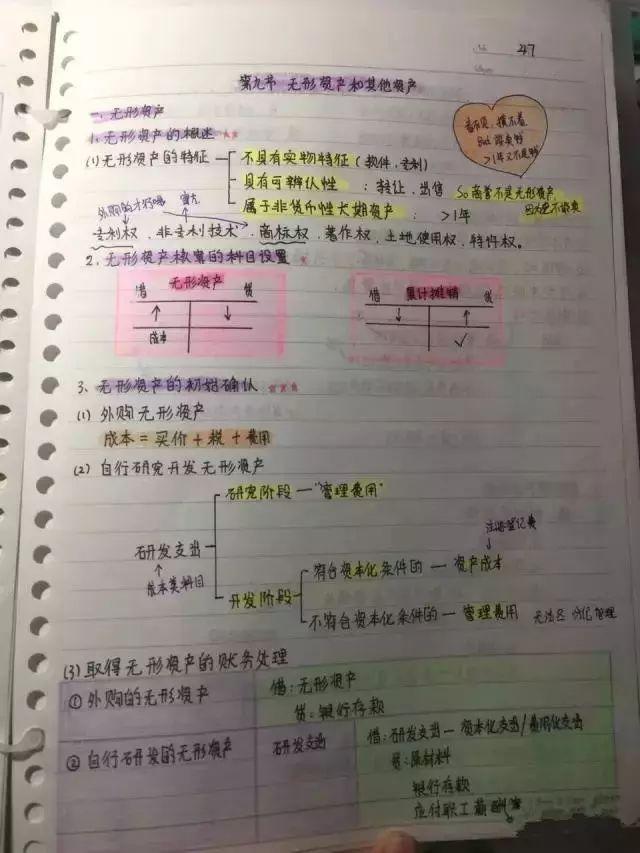 No. 47
第九节 无形资产和其他资产
一、无形资产
看不见,摸不着
But 很卖钱
>1年又不是钱
1、无形资产的概述 ★★
(1)无形资产的特征
不具有实物特征(软件、专利)
具有可辨认性:转让、出售 So商誉不是无形资产
因为它不能卖
属于非货币性长期资产:>1年
外购的才行哦
专利权、非专利技术、商标权、著作权、土地使用权、特许权。
2、无形资产核算的科目设置 ★
借 无形资产 贷
↑ ↓
成本
借 累计摊销 贷
↓ ↑
✓
3、无形资产的初始确认 ★★★
(1)外购无形资产
成本=买价+税+费用
(2)自行研究开发无形资产
研究阶段—"管理费用"
注册登记费
研发支出
↑
成本类科目
开发阶段
符合资本化条件的—资产成本
不符合资本化条件的—管理费用 无法区分化管理
(3)取得无形资产的账务处理
①外购的无形资产
借:无形资产
贷:银行存款
②自行研发的无形资产
研发支出
借:研发支出—资本化支出/费用化支出
贷:原材料
银行存款
应付职工薪酬